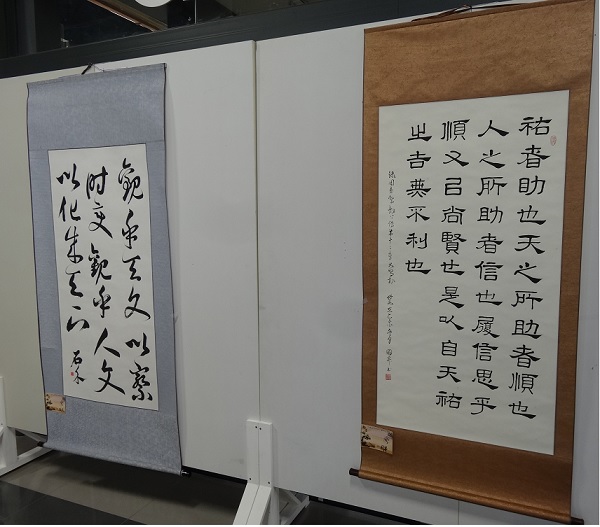 祐者助也天之所助者順也
人之所助者信也履信思乎
順又㠯尚賢也是以自天祐
之吉無不利也
觀乎天文以察
时变觀乎人文
以化成天下